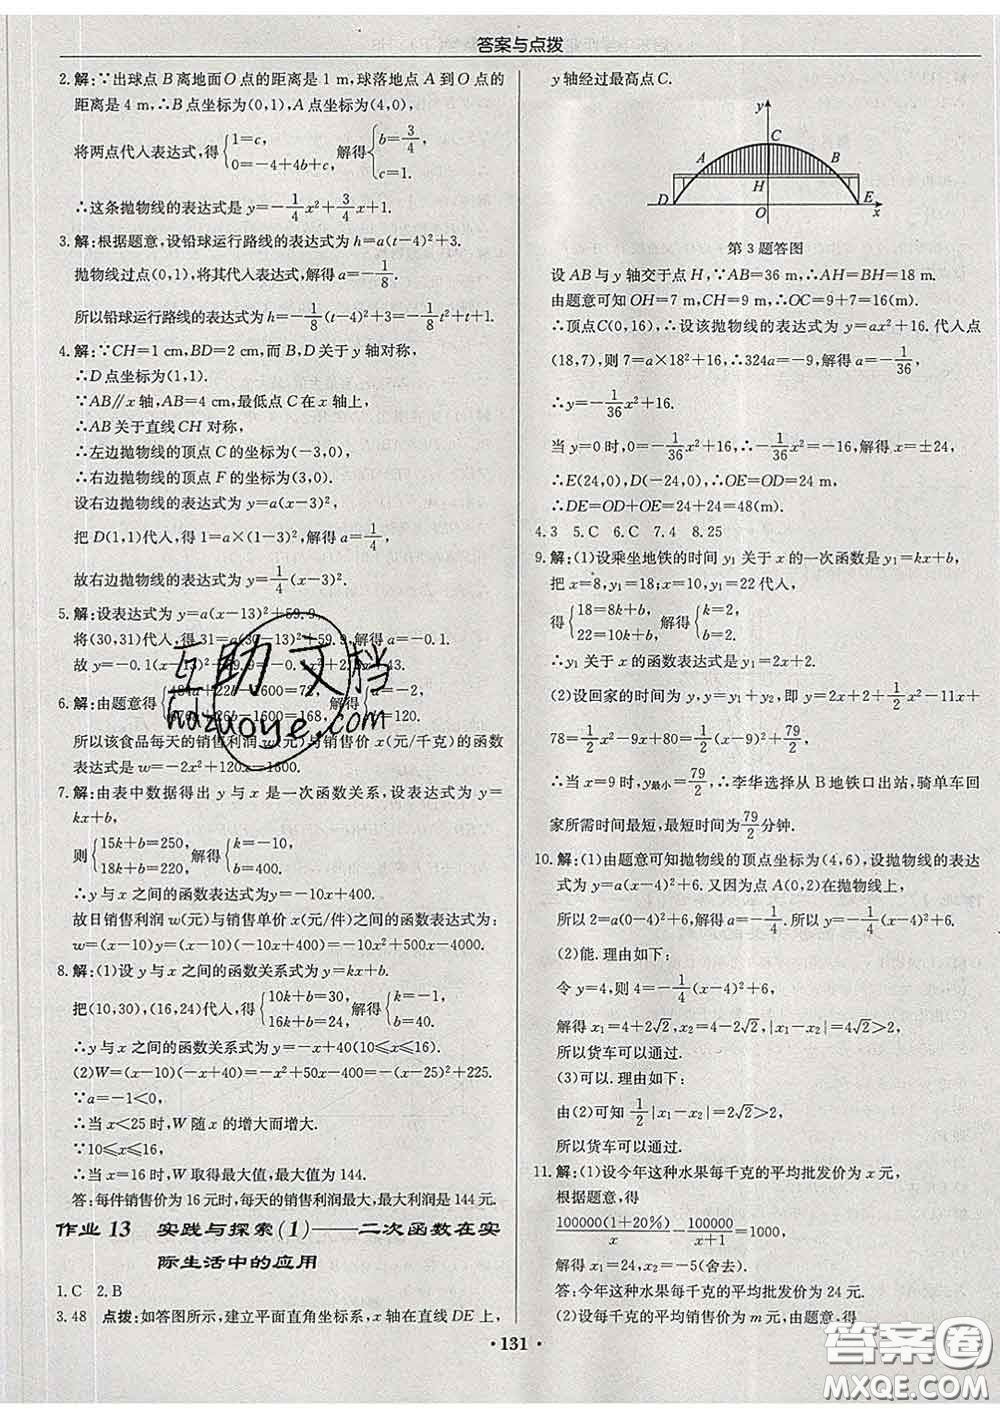 答案与点拨
2.解:∵出球点B离地面O点的距离是1 m,球落地点A到O点的
距离是4 m,∴B点坐标为(0,1),A点坐标为(4,0),
将两点代入表达式,得{1=c, 0=-4+4b+c, 解得{b=3/4, c=1.
∴这条抛物线的表达式是y=-1/4x²+3/4x+1.
3.解:根据题意,设铅球运行路线的表达式为h=a(t-4)²+3.
抛物线过点(0,1),将其代入表达式,解得a=-1/8.
所以铅球运行路线的表达式为h=-1/8(t-4)²+3=-1/8t²+t+1.
4.解:∵CH=1 cm,BD=2 cm,而B,D关于y轴对称,
∴D点坐标为(1,1).
∵AB∥x轴,AB=4 cm,最低点C在x轴上,
∴AB关于直线CH对称,
∴左边抛物线的顶点C的坐标为(-3,0),
∴右边抛物线的顶点F的坐标为(3,0).
设右边抛物线的表达式为y=a(x-3)²,
把D(1,1)代入,得1=a×(1-3)²,解得a=1/4,
故右边抛物线的表达式为y=1/4(x-3)².
5.解:设表达式为y=a(x-13)²+59.9,
将(30,31)代入,得31=a(30-13)²+59.9,解得a=-0.1.
故y=-0.1(x-13)²+59.9=-0.1x²+2.6x+43.
6.解:由题意得 -1600=72, 676a+26b-1600=168, a=-2, b=120.
所以该食品每天的销售利润w(元)与销售价x(元/千克)的函数
表达式是w=-2x²+120x-1600.
7.解:由表中数据得出y与x是一次函数关系,设表达式为y=
kx+b,
则{15k+b=250, 18k+b=220, 解得{k=-10, b=400.
∴y与x之间的函数表达式为y=-10x+400,
故日销售利润w(元)与销售单价x(元/件)之间的函数表达式为:
w=(x-10)y=(x-10)(-10x+400)=-10x²+500x-4000.
8.解:(1)设y与x之间的函数关系式为y=kx+b.
把(10,30),(16,24)代入,得{10k+b=30, 16k+b=24, 解得{k=-1, b=40,
∴y与x之间的函数关系式为y=-x+40(10≤x≤16).
(2)W=(x-10)(-x+40)=-x²+50x-400=-(x-25)²+225.
∵a=-1<0,
∴当x<25时,W随x的增大而增大.
∵10≤x≤16,
∴当x=16时,W取得最大值,最大值为144.
答:每件销售价为16元时,每天的销售利润最大,最大利润是144元.
作业13 实践与探索(1)——二次函数在实
际生活中的应用
1.C 2.B
3.48 点拨:如答图所示,建立平面直角坐标系,x轴在直线DE上,
y轴经过最高点C.
y
C
A
B
H
D
E
O
x
第3题答图
设AB与y轴交于点H,∵AB=36 m,∴AH=BH=18 m.
由题意可知OH=7 m,CH=9 m,∴OC=9+7=16(m).
∴顶点C(0,16),∴设该抛物线的表达式为y=ax²+16.代入点
(18,7),则7=a×18²+16,∴324a=-9,解得a=-1/36,
∴y=-1/36x²+16.
当y=0时,0=-1/36x²+16,∴-1/36x²=-16,解得x=±24,
∴E(24,0),D(-24,0),∴OE=OD=24(m),
∴DE=OD+OE=24+24=48(m).
4.3 5.C 6.C 7.4 8.25
9.解:(1)设乘坐地铁的时间y₁关于x的一次函数是y₁=kx+b,
把x=8,y₁=18;x=10,y₁=22代入,
得{18=8k+b, 22=10k+b, 解得{k=2, b=2.
∴y₁关于x的函数表达式是y₁=2x+2.
(2)设回家的时间为y,y=y₁+y₂,即y=2x+2+1/2x²-11x+
78=1/2x²-9x+80=1/2(x-9)²+79/2,
∴当x=9时,y最小=79/2,∴李华选择从B地铁口出站,骑单车回
家所需时间最短,最短时间为79/2分钟.
10.解:(1)由题意可知抛物线的顶点坐标为(4,6),设抛物线的表达
式为y=a(x-4)²+6.又因为点A(0,2)在抛物线上,
所以2=a(0-4)²+6,解得a=-1/4.所以y=-1/4(x-4)²+6.
(2)能.理由如下:
令y=4,则4=-1/4(x-4)²+6,
解得x₁=4+2√2,x₂=4-2√2,|x₁-x₂|=4√2>2,
所以货车可以通过.
(3)可以.理由如下:
由(2)可知1/2|x₁-x₂|=2√2>2,
所以货车可以通过.
11.解:(1)设今年这种水果每千克的平均批发价为x元,
根据题意,得
100000(1+20%)/x-100000/(x+1)=1000,
解得x₁=24,x₂=-5(舍去).
答:今年这种水果每千克的平均批发价为24元.
(2)设每千克的平均销售价为m元,由题意,得
·131·
互助文档
huzuoye.com
答案圈
MXQE.COM